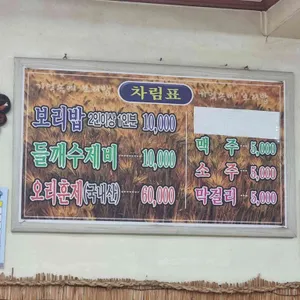 차림표
보리밥 2인이상 1인분 10,000
들깨수제비 10,000
오리훈제(국내산) 60,000
맥주 5,000
소주 5,000
막걸리 5,000